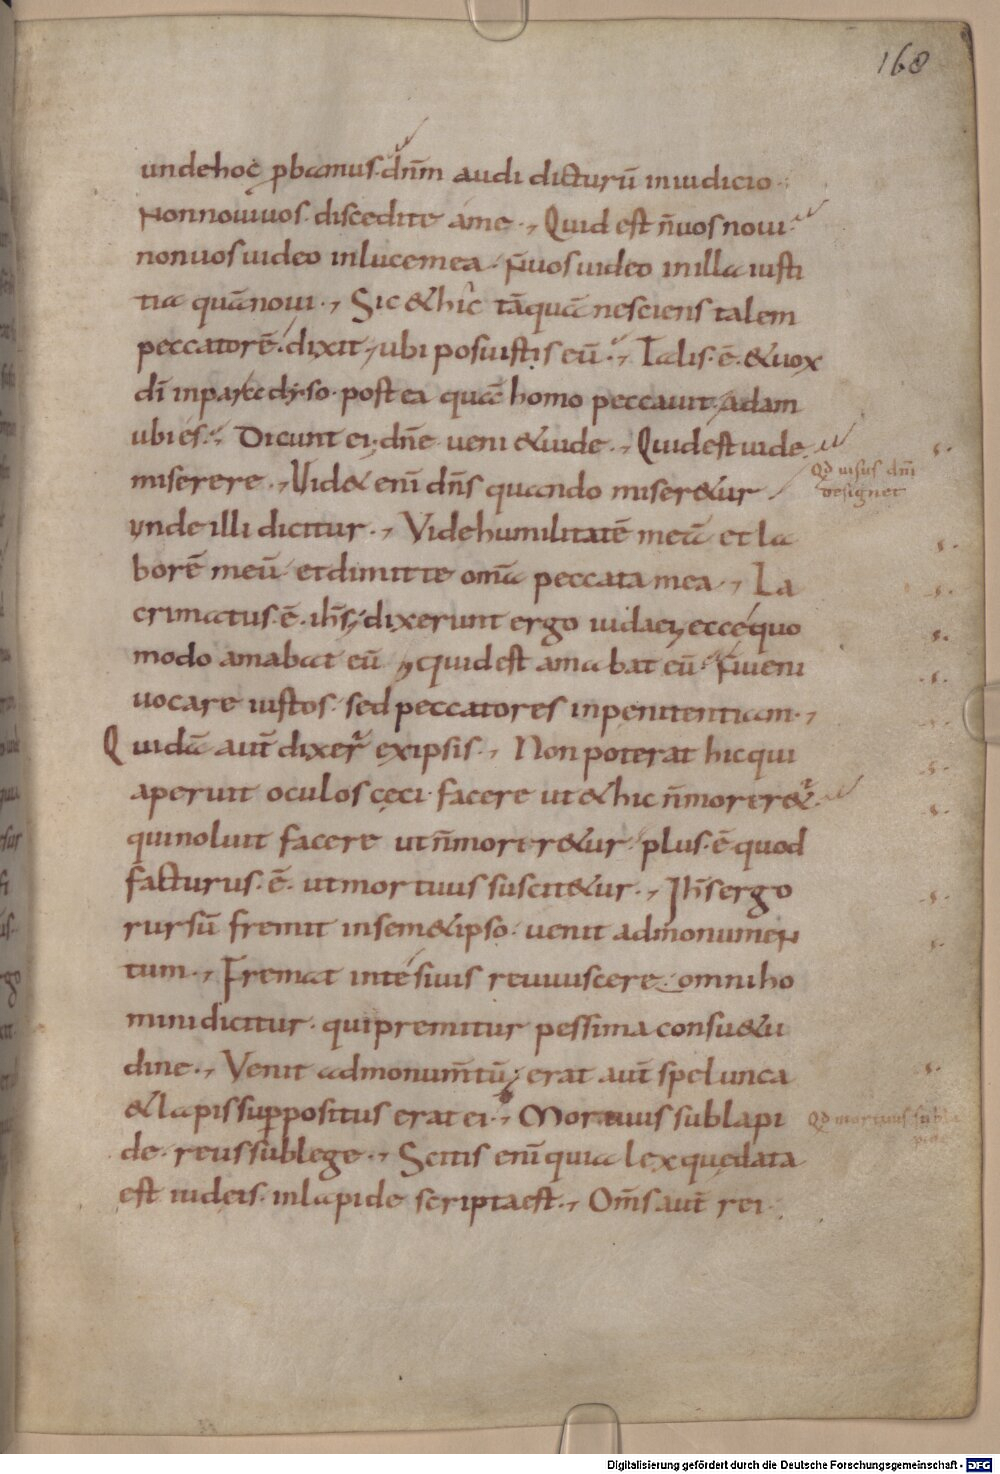 168
undehoc ꝓbamus. dn̄m audi dicturū iniudicio
Nonnouiuos. discedite ame., Quid est n̄uos noui
nonuosuideo inlucemea. N̄uosuideo inilla iusti
tia quānoui., Sic & hic tāquā nesciens talem
peccatorē. dixit, ubi posuistis eū., Talis. ē. & uox
dī inparadyso. postea quā homo peccauit, adam
ubi es. Dicunt ei, dn̄e ueni & uide., Quid est uide
miserere., Uid& enī dn̄s quando miser&ur
unde illi dicitur., Videhumilitatē meā et la
borē meū et dimitte om̄a peccata mea., La
crimatus. ē. ih̄s, dixerunt ergo iudaei, ecce quo
modo amabat eū, quid est amabat eū. N̄ ueni
uocare iustos. sed peccatores inpenitentiam.,
Quidā aut̄ dixer̄ exipsis., Non poterat hic qui
aperuit oculos cęci. facere ut & hic n̄morer&ur
quinoluit facere ut n̄morer&ur. plus. ē quod
facturus. ē. ut mortuus suscit&ur., Ih̄s ergo
rursū fremit insem&ipso. uenit admonumen
tum., Fremat inte siuis reuiuiscere. omni ho
mini dicitur. qui premitur pessima consu&u
dine., Venit admonum̄tū, erat aut̄ spelunca
& lapis suppositus erat ei., Mortuus sub lapi
de. reus sub lege., Scitis enī quia lex quę data
est iudeis. inlapide scripta est., Om̄s aut̄ rei
Qd uisus dn̄i
designet
Qd mortuus subla
pide
Digitalisierung gefördert durch die Deutsche Forschungsgemeinschaft - DFG